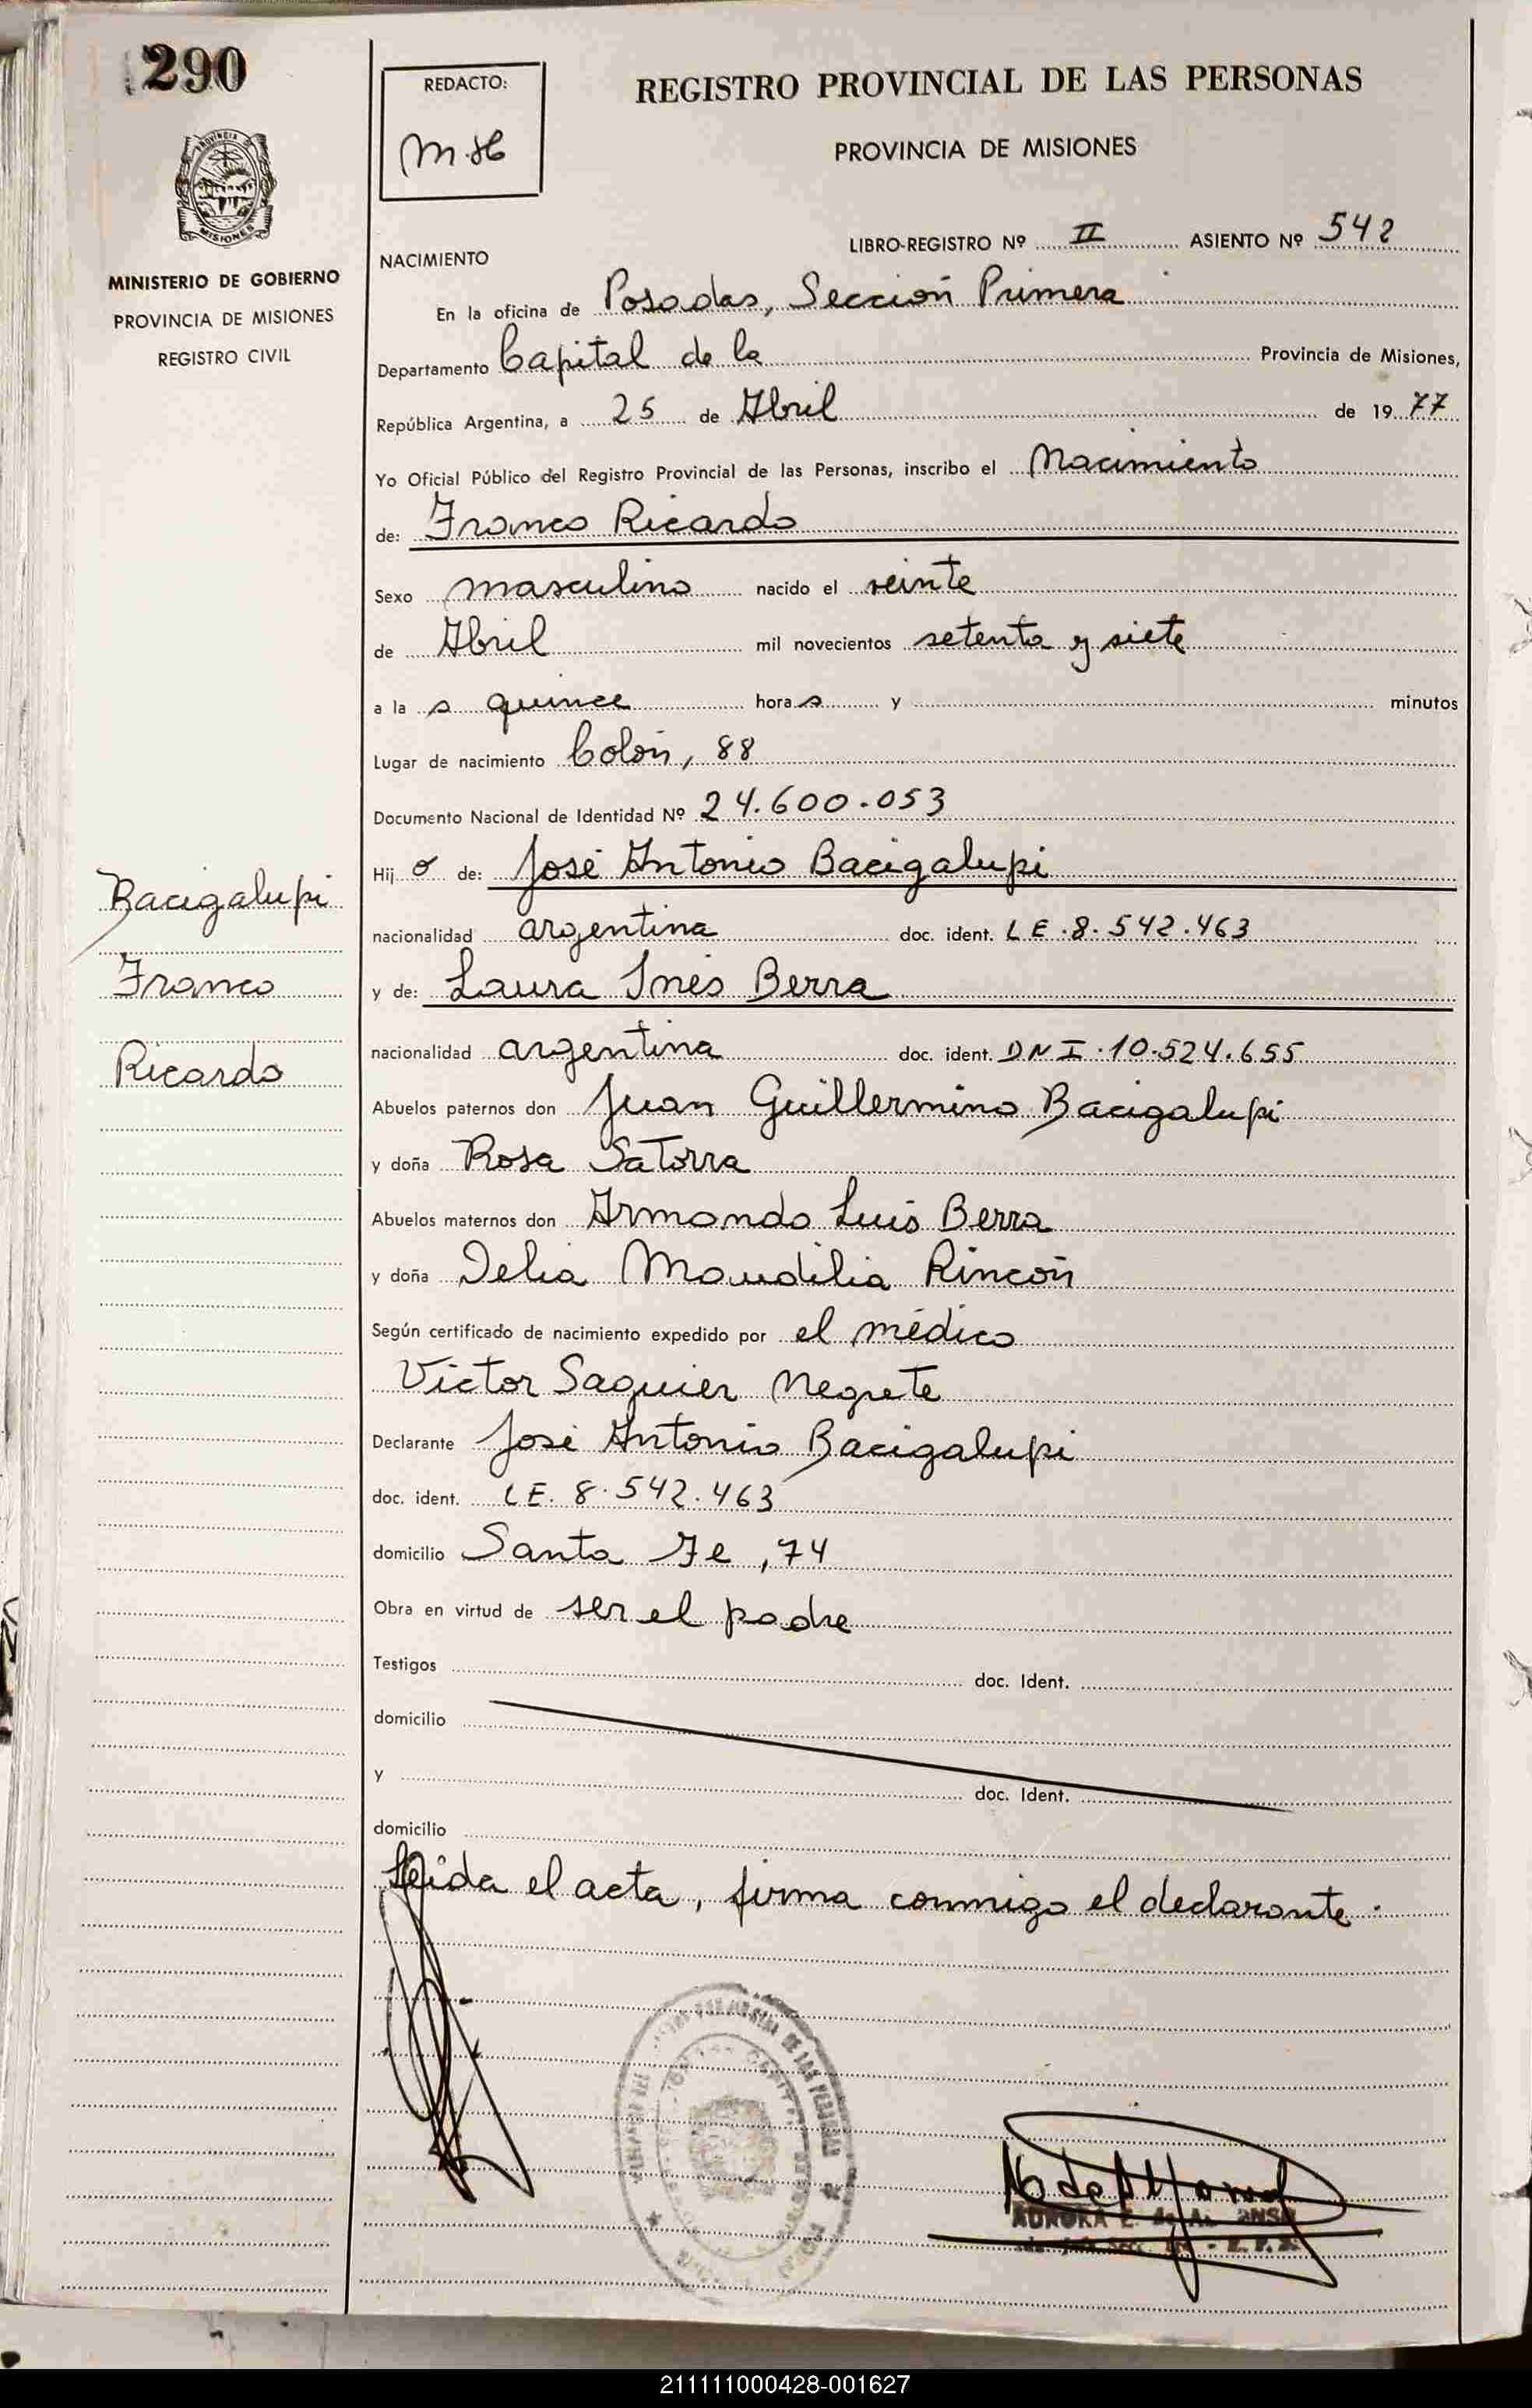 290
REDACTO:
REGISTRO PROVINCIAL DE LAS PERSONAS
PROVINCIA DE MISIONES
MISIONES
MINISTERIO DE GOBIERNO
PROVINCIA DE MISIONES
REGISTRO CIVIL
LIBRO-REGISTRO Nº II ASIENTO Nº 542
NACIMIENTO
En la oficina de Posadas, Sección Primera
Departamento Capital de la Provincia de Misiones,
República Argentina, a 25 de Abril de 1977
Yo Oficial Público del Registro Provincial de las Personas, inscribo el Nacimiento
de: Franco Ricardo
Sexo masculino nacido el veinte
de Abril mil novecientos setenta y siete
a la s quince hora s y minutos
Lugar de nacimiento Colón, 88
Documento Nacional de Identidad Nº 24.600.053
Hij o de: José Antonio Bacigalupi
nacionalidad argentina doc. ident. LE.8.542.463
y de: Laura Inés Berra
nacionalidad argentina doc. ident. DNI.10.524.655
Abuelos paternos don Juan Guillermino Bacigalupi
y doña Rosa Satorra
Abuelos maternos don Armando Luis Berra
y doña Delia Maudilia Rincón
Según certificado de nacimiento expedido por el médico
Victor Saguier Negrete
Declarante José Antonio Bacigalupi
doc. ident. LE. 8.542.463
domicilio Santa Fe, 74
Obra en virtud de ser el padre
Testigos doc. Ident.
domicilio
y doc. Ident.
domicilio
Leida el acta, firma conmigo el declarante.
Bacigalupi
Franco
Ricardo
DE LAS PERSONAS
AURORA E. de
211111000428-001627